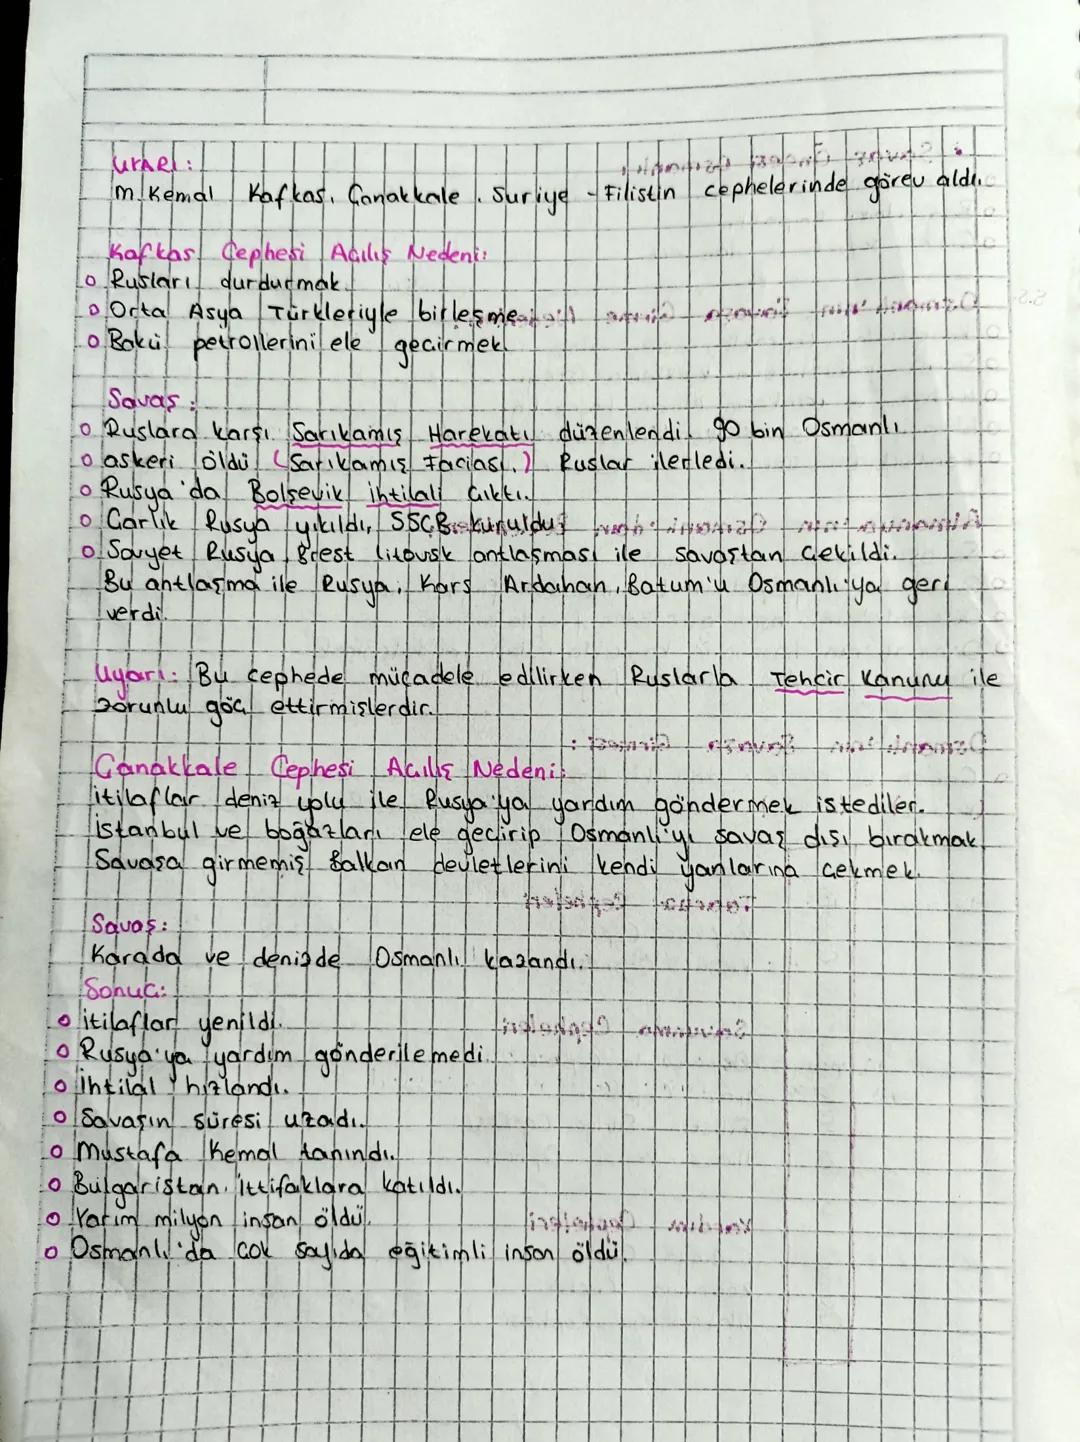 UYARI:
M. Kemal Kafkas, Çanakkale, Suriye - Filistin cephelerinde görev aldı.
Kafkas Cephesi Açılış Nedeni:
o Rusları durdurmak
o Orta Asya Türkleriyle birleşme
o Bakü petrollerini ele geçirmek
Savaş:
o Ruslara karşı Sarıkamış Harekatı düzenlendi. 90 bin Osmanlı
o askeri öldü (Sarıkamış Faciası.) Ruslar ilerledi.
o Rusya'da Bolşevik ihtilali çıktı.
o Çarlık Rusya yıkıldı, SSCB kuruldu
o Sovyet Rusya, Brest litovsk antlaşması ile savaştan çekildi.
Bu antlaşma ile Rusya, Kars Ardahan, Batum'u Osmanlı'ya geri
verdi.
Uyarı: Bu cephede mücadele edilirken Ruslarla Tehcir Kanunu ile
zorunlu göç ettirmişlerdir.
Çanakkale Cephesi Açılış Nedeni:
itilaflar deniz yolu ile Rusya'ya yardım göndermek istediler.
istanbul ve boğazları ele geçirip Osmanlı'yı savaş dışı bırakmak
Savaşa girmemiş Balkan devletlerini kendi yanlarına çekmek.
Savaş:
Karada ve denizde Osmanlı kazandı.
Sonuç:
o itilaflar yenildi.
o Rusya'ya yardım gönderilemedi.
o ihtilal hızlandı.
o Savaşın süresi uzadı.
o Mustafa Kemal tanındı.
o Bulgaristan, ittifaklara katıldı.
o Yarım milyon insan öldü.
o Osmanlı'da çok sayıda eğitimli insan öldü.